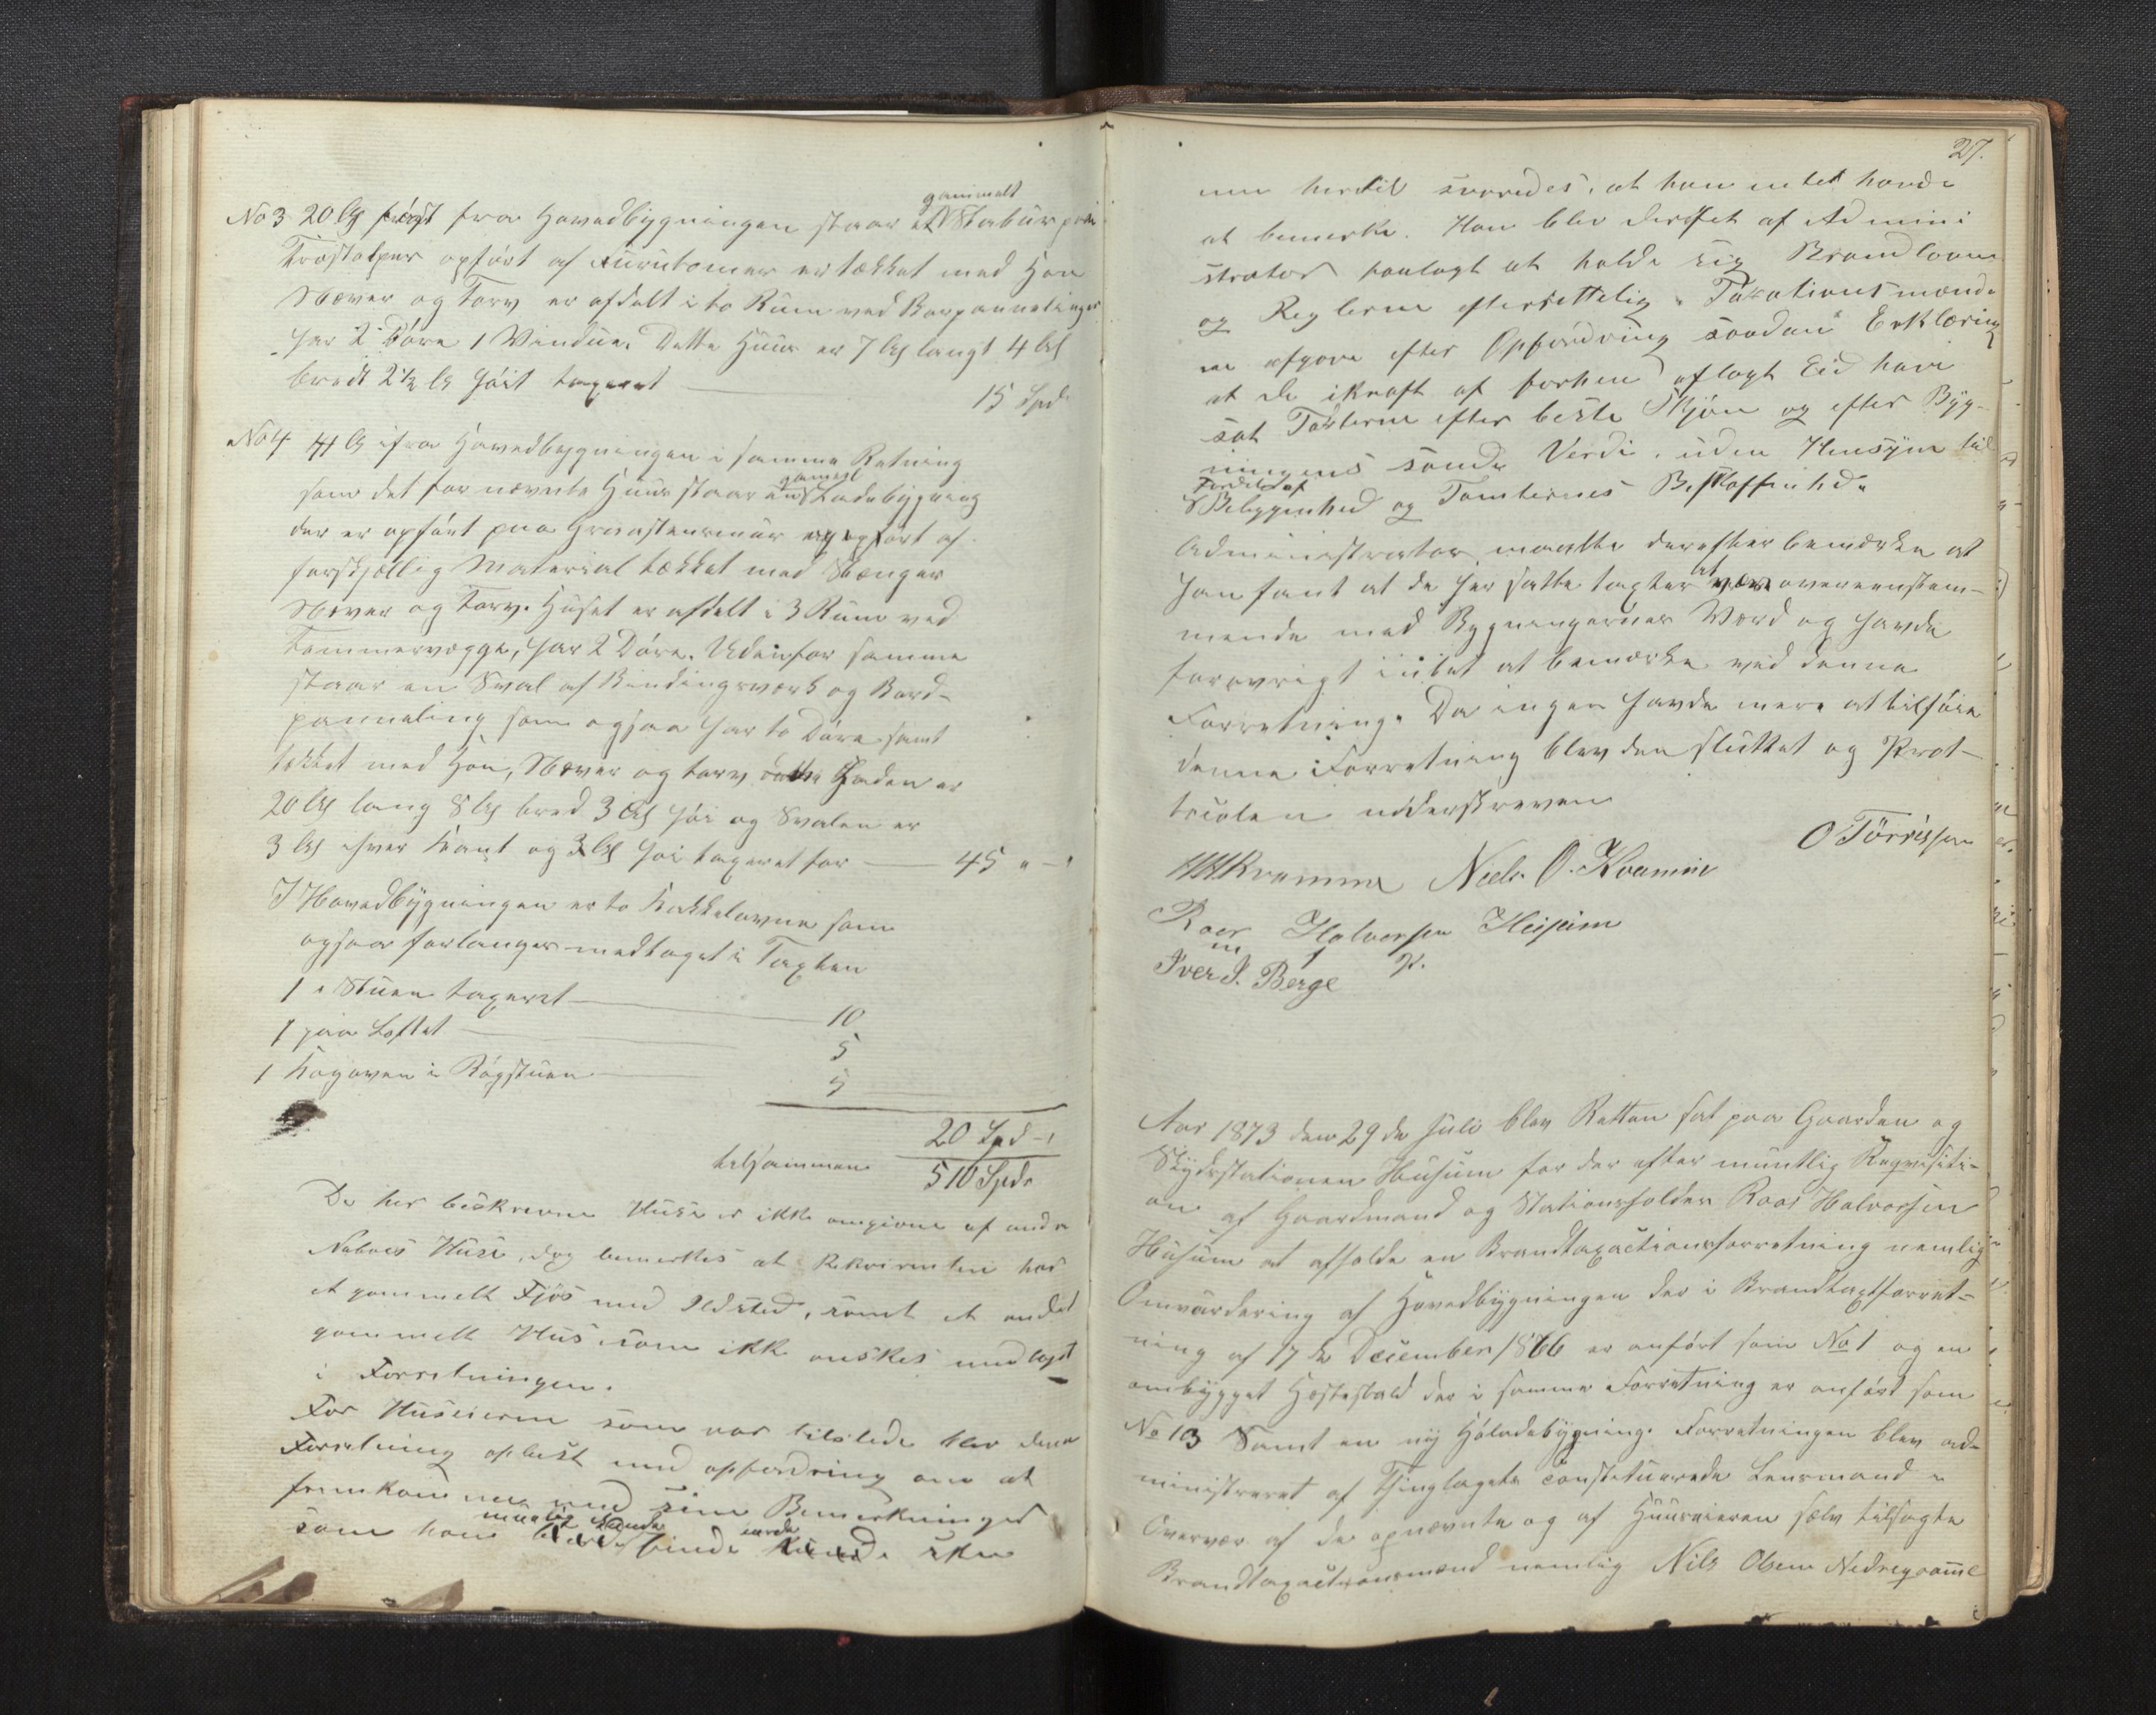 gammelt
No 3 20 Al fra Hovedbygningen staar et Stabur paa
Træstolper opført af Furutømmer er tækket med Hon
Næver og Torv er afdelt i to Rum ved Borpanneling
har 2 Døre 1 Vindue. Dette Huus er 7 Al langt 4 Al
bredt 2½ Al høit taxeret 15 Spd.
No 4 4 Al ifra Hovedbygningen i samme Retning
gammel
som det for nævnte Huus staar en Ladebygning
der er opført paa Graastensmuur og opført af
forskjellig Material tækket med Stænger
Næver og Torv. Huset er afdelt i 3 Rum ved
Tømmervægge, har 2 Døre. Udenfor samme
staar en Sval af Bindingsværk og Bord-
panneling som ogsaa har to Døre samt
tækket med Hon, Næver og torv Laden er
20 Al lang 8 Al bred 3 Al høi og Svalen er
3 Al ihver Kant og 3 Al høi taxeret for 45 " - "
I Hovedbygningen er to Kakkelovne som
ogsaa forlanges medtaget i Taxten
1 i Stuen taxeret 10
1 paa Loftet 5
1 Kogoven i Røgstuen 5
20 Spd -"
tilsammen 510 Spd.
De her beskrevne Huse er ikke omgivne af andre
Naboers Huse, dog bemerkes at Rekvirenten har
et gammelt Fjøs med Ildsted, samt et andet
gammelt Hus som ikke ønskes medtaget
i Forretningen.
For Huseieren som var tilstede blev denne
Forretning oplæst med opfordring om at
fremkomme med sine Bemerkninger
muligt
som han finde
27.
hertil svaredes, at han intet havde
at bemerke. Han blev derefter af Admini
strator paalagt at holde sig Brandloven
og Reglerne efterrettelig. Taxationsmænde
ne afgave efter Opfordring saadan Erklæring
at de i kraft af forhen aflagt Eid have
sat Taxterne efter beste Skjøn og efter Byg-
ningens sande Verdi, uden Hensyn til
Fordeel af
Beliggenhed og Tomternes Beskaffenhed.
Administrator maatte derefter bemærke at
han fant at de her satte taxter at være overeenstem-
mende med Bygningernes Værd og havde
forøvrigt intet at bemærke ved denne
Forretning. Da ingen havde mere at tilføie
denne Forretning blev den sluttet og Prot-
tocolen underskreven
O Tørrissen
Kvamme Niels. O. Kvamme
Roar Halvorsen Husum
Iver I. Berge
Aar 1873 den 29de Juli blev Retten sat paa Gaarden og
Skydsstationen Husum for der efter muntlig Reqvisiti-
on af Gaardmand og Stationsholder Roar Halvorsen
Husum at afholde en Brandtaxationsforretning nemlig
Omvurdering af Hovedbygningen der i Brandtaxtforret-
ning af 17de December 1866 er anført som No 1 og en
ombygget Hestestald der i samme Forretning er anført som
No 13 Samt en ny Høladebygning. Forretningen blev ad-
ministreret af Thinglagets constituerede Lensmand i
Overvær af de opnævnte og af Huuseieren selv tilsagte
Brandtaxationsmænd nemlig Nils Olsen